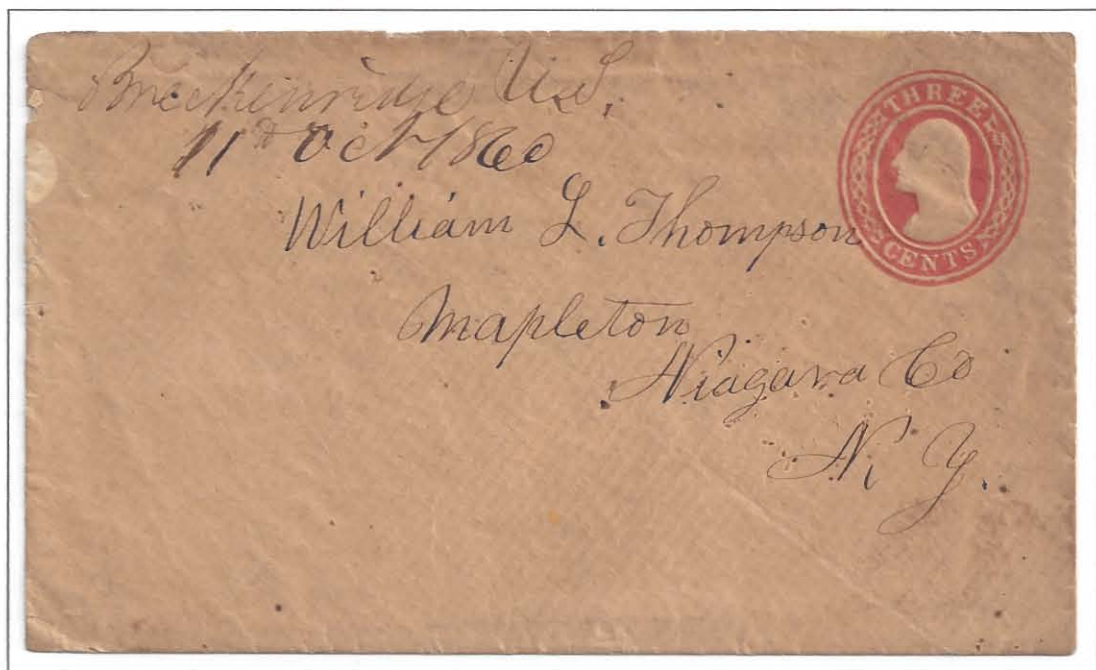 Breckenridge U.S.
11th Oct 1860
THREE
CENTS
William L. Thompson
Mapleton
Niagara Co
N. Y.